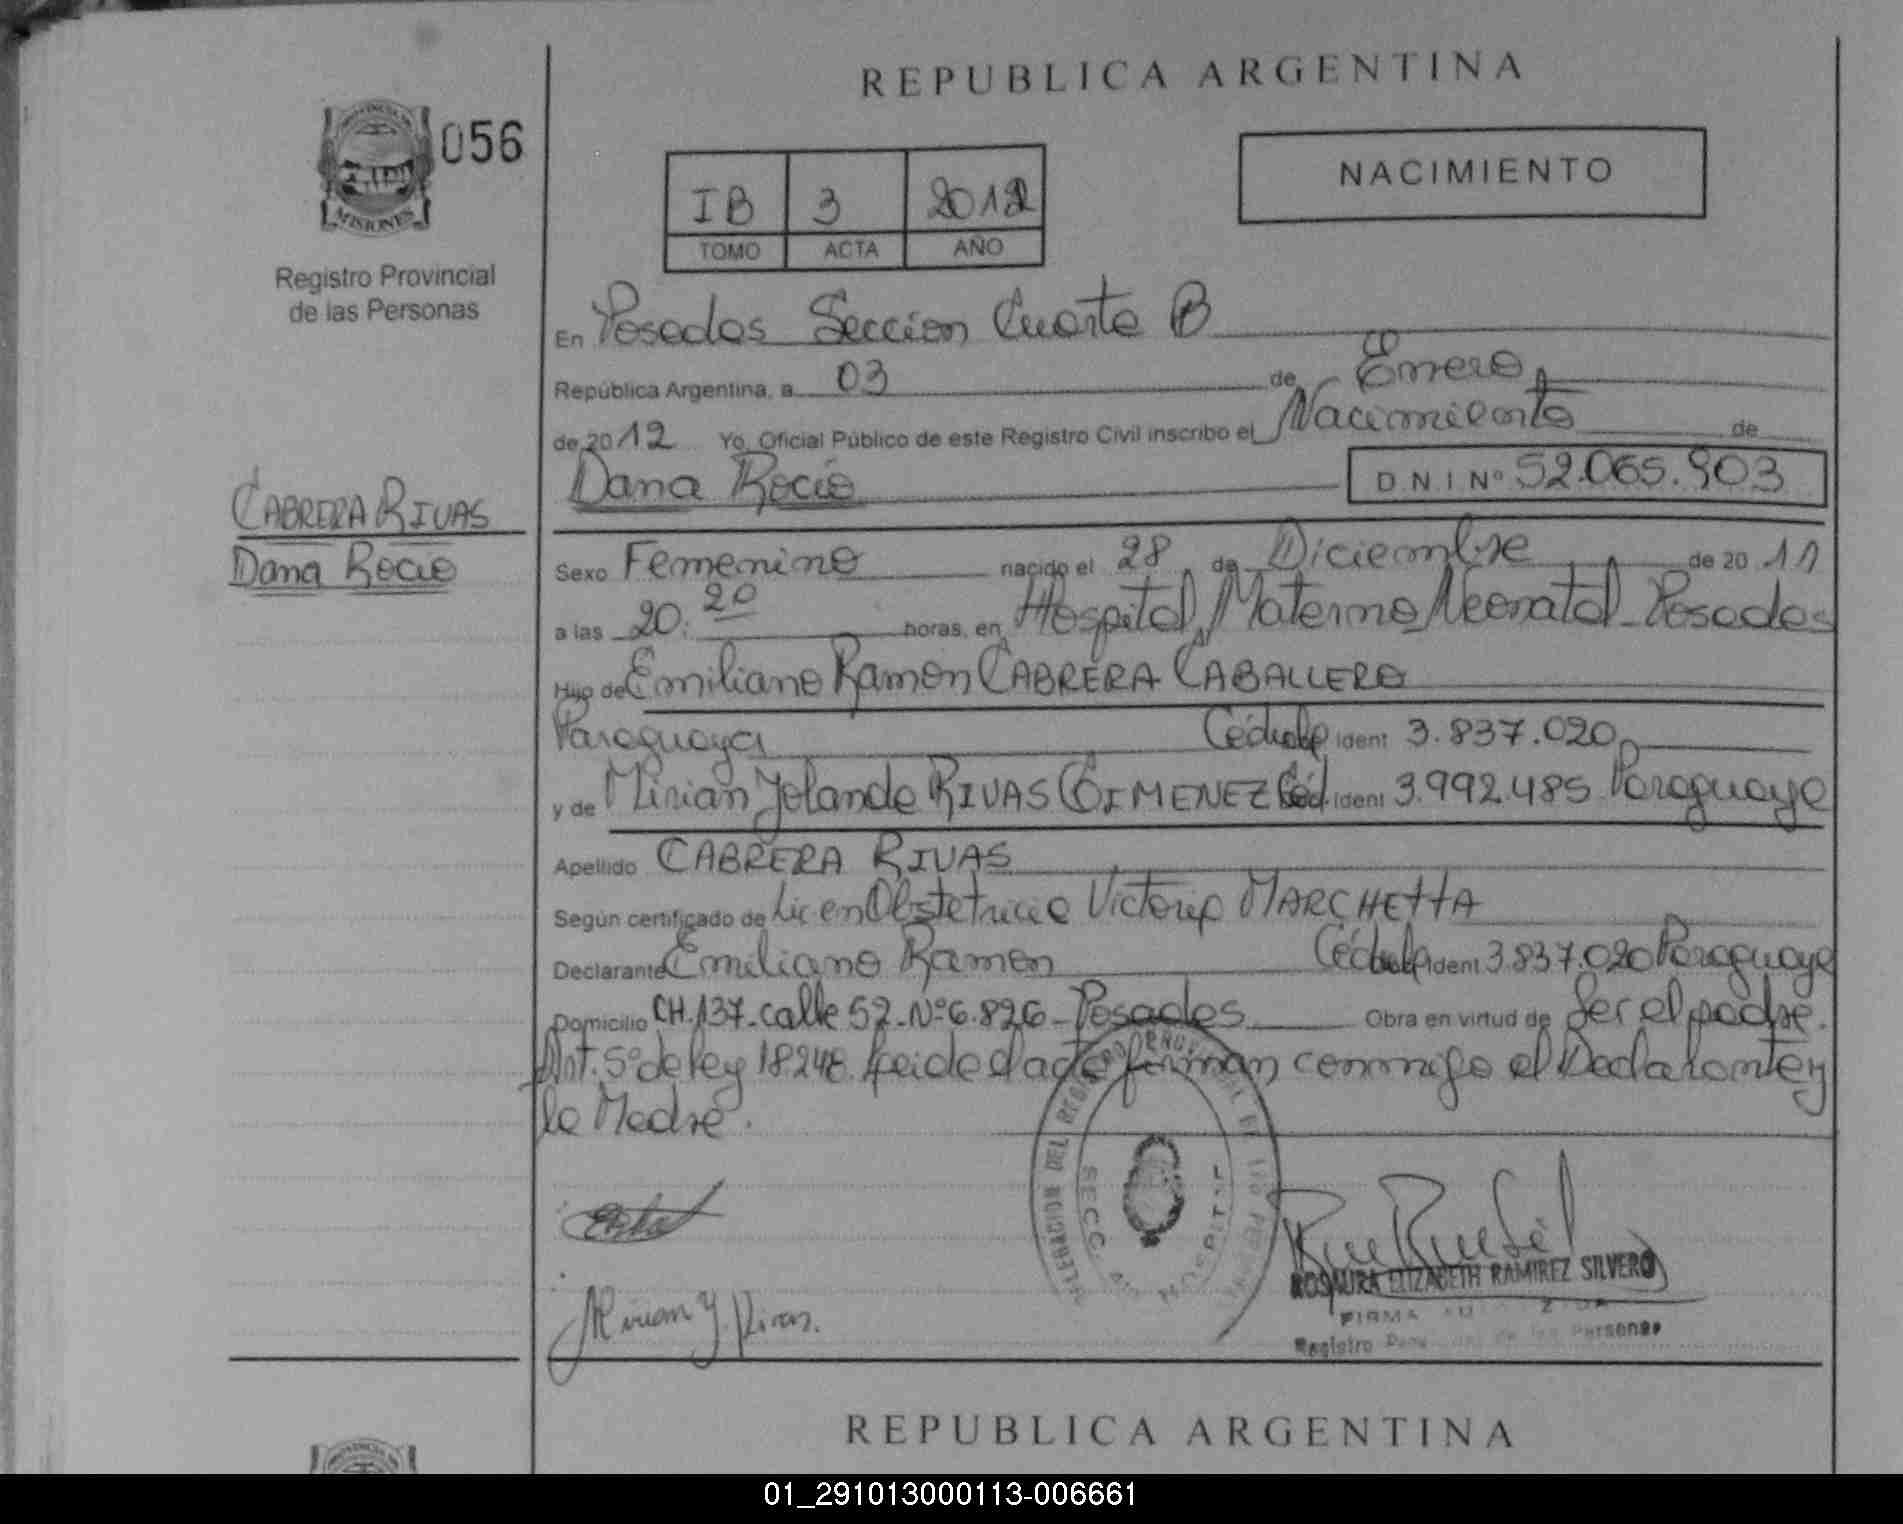 REPUBLICA ARGENTINA
056
MISIONES
Registro Provincial
de las Personas
IB 3 2012
TOMO ACTA AÑO
NACIMIENTO
En Posadas Seccion Cuarta B
República Argentina, a 03 de Enero
de 2012 Yo, Oficial Público de este Registro Civil inscribo el Nacimiento de
Dana Rocio D.N.I Nº 52.065.903
CABRERA RIVAS
Dana Rocio
Sexo Femenino nacido el 28 de Diciembre de 2011
a las 20:20 horas, en Hospital Materno Neonatal - Posadas
Hijo de Emiliano Ramon CABRERA CABALLERO
Paraguaya Cédula Ident 3.837.020
y de Mirian Yolanda RIVAS GIMENEZ Céd. Ident 3.992.485 Paraguaya
Apellido CABRERA RIVAS
Según certificado de Lic en Obstetricia Victoria MARCHETTA
Declarante Emiliano Ramon Cédula Ident 3.837.020 Paraguaya
Domicilio CH.137-calle 52-Nº6.826-Posadas Obra en virtud de Ser el padre.
Art. 5º de ley 18248. Leida el acta firman conmigo el Declarante y
la Madre.
SECC. HOSPITAL
Mirian Y. Rivas.
ROSAURA ELIZABETH RAMIREZ SILVERO
FIRMA
Registro de las Personas
REPUBLICA ARGENTINA
01_291013000113-006661